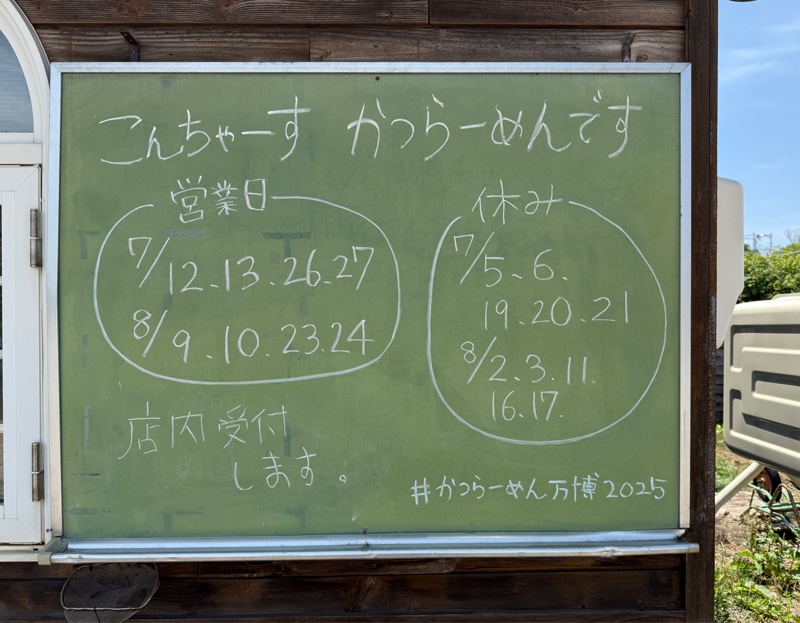 こんちゃーす かつらーめんです
営業日
7/12、13、26、27
8/9、10、23、24
休み
7/5、6、
19、20、21
8/2、3、11、
16、17、
店内受付
します。
#かつらーめん万博2025